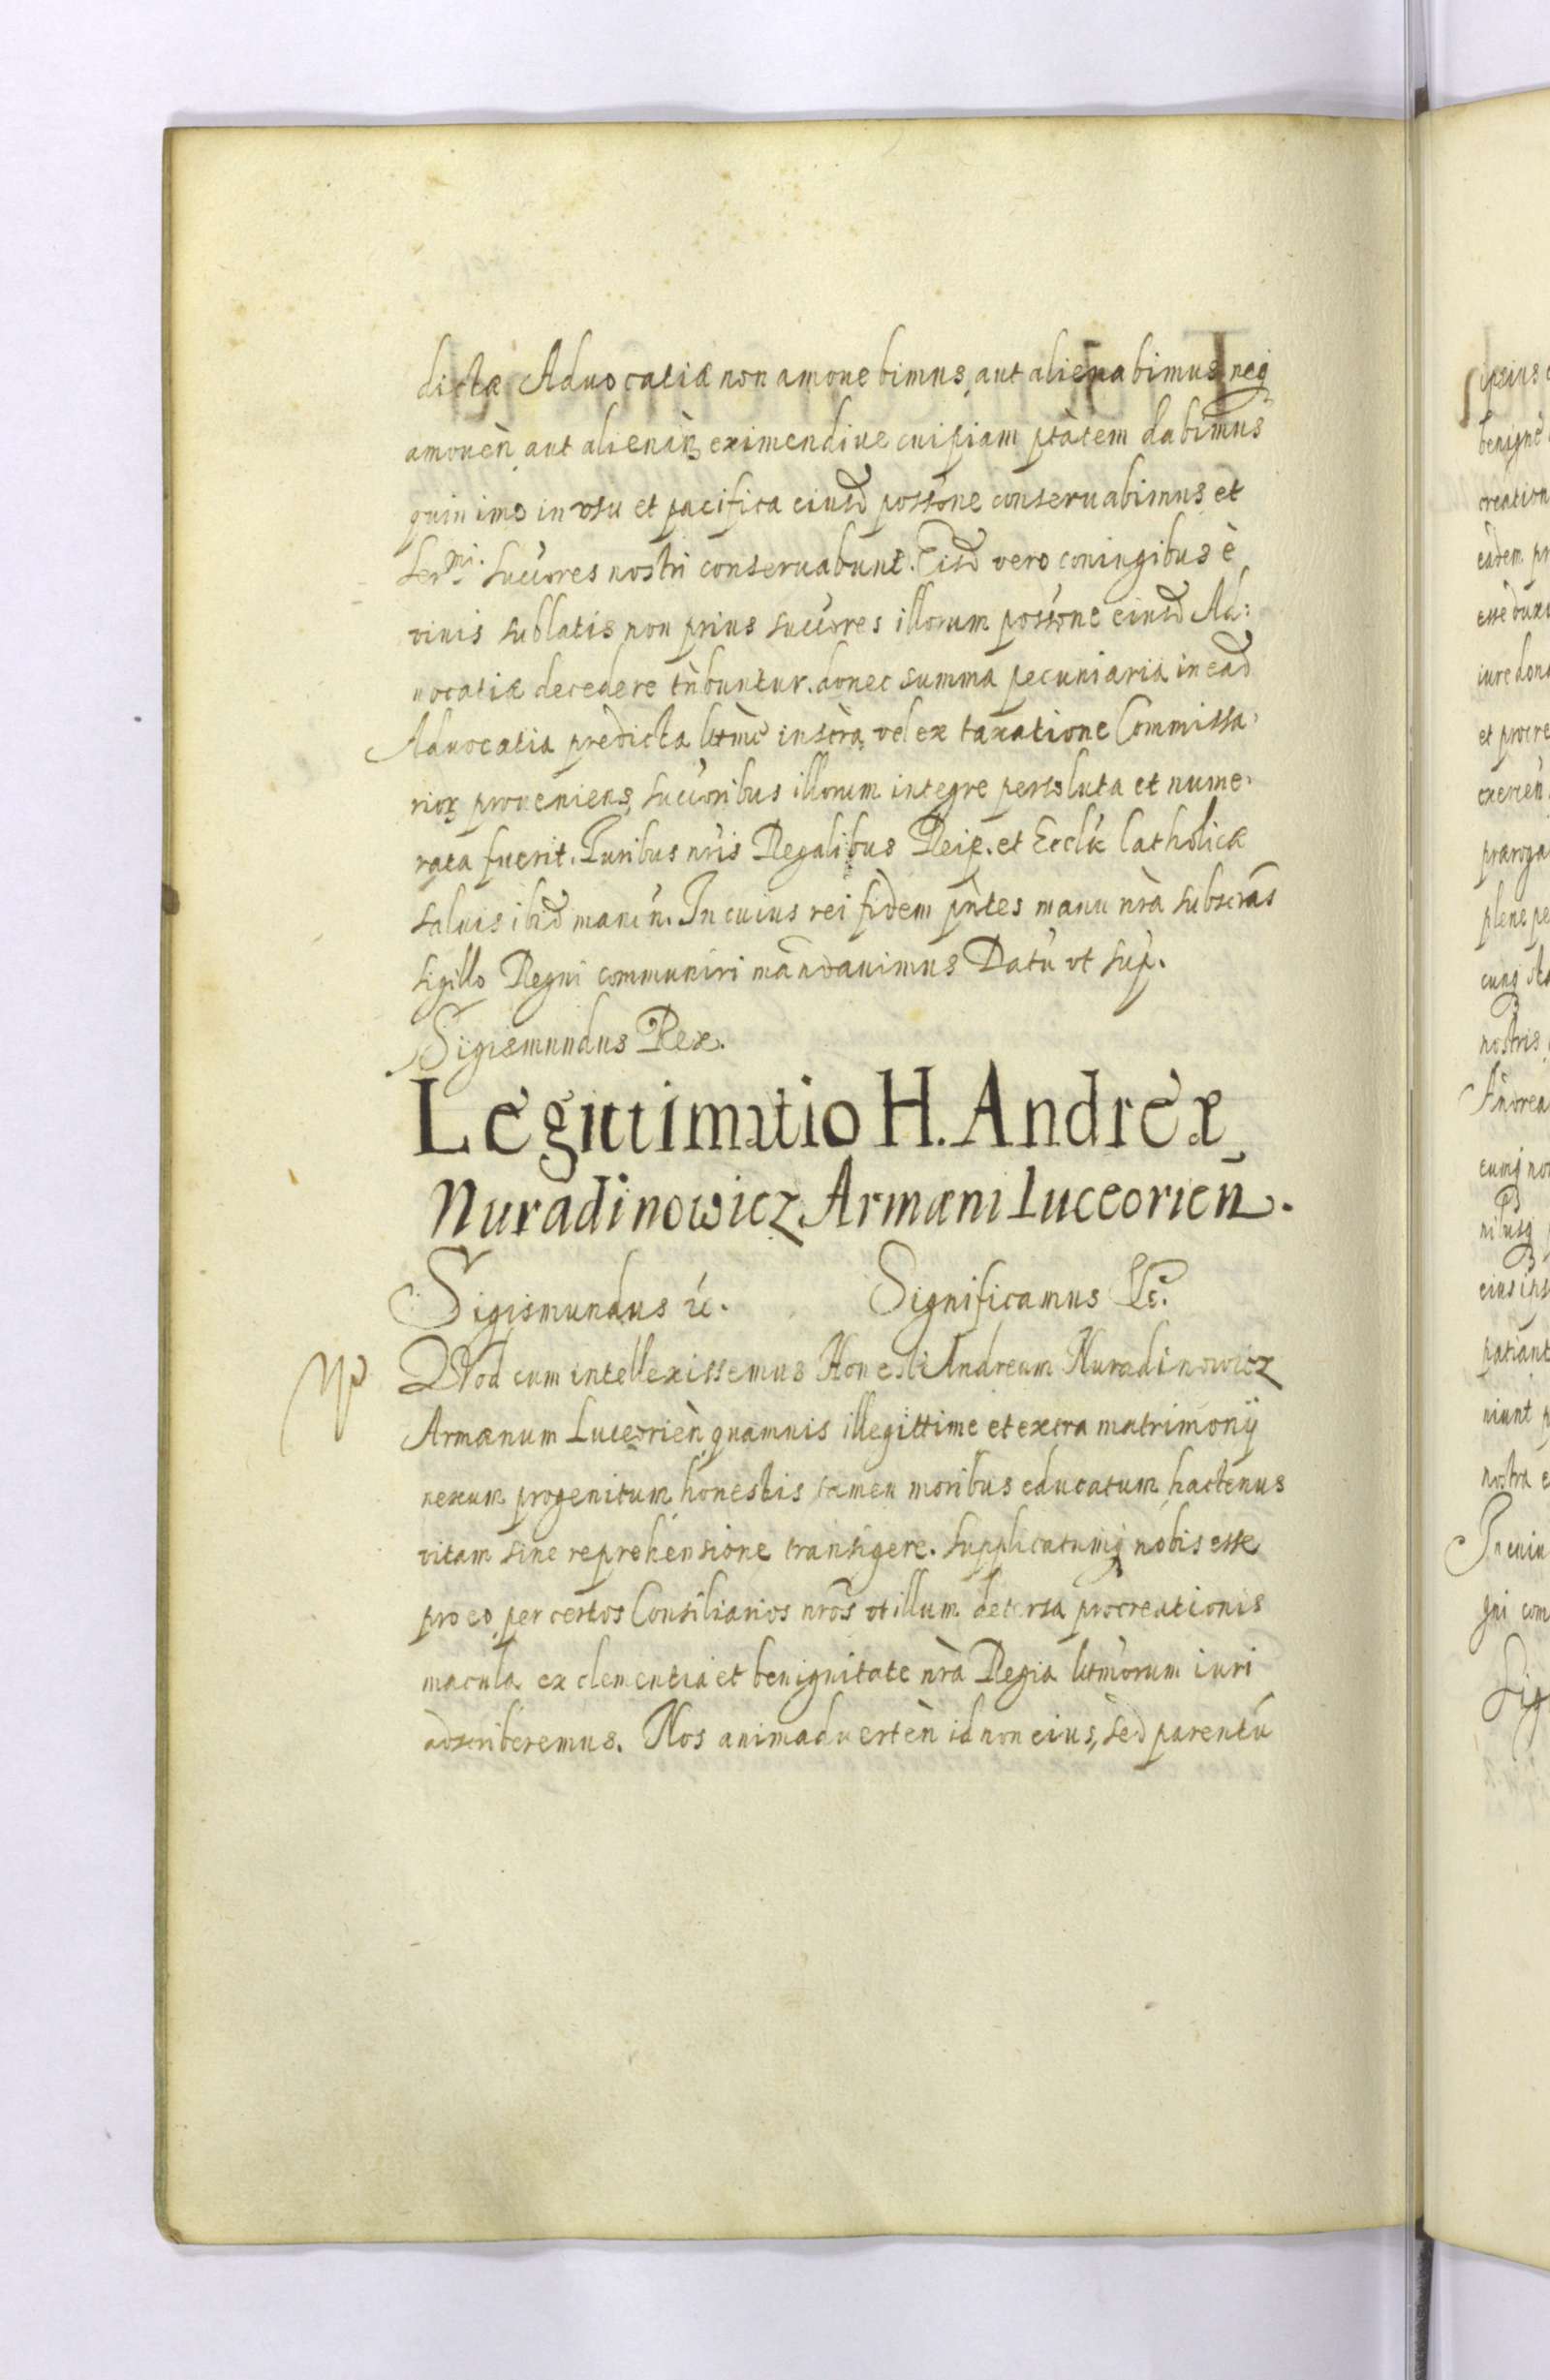 dictæ Aduocatiæ non amouebimus, aut alienabimus neq
amouèn, aut alienan, eximendiue cuipiam ptàtem dabimus
quin imo in vsu et pacifica eiusd possone conseruabimus, et
Sermi. Succores nostri conseruabunt. Eisd vero coniugibus è
viuis sublatis non prius succores illorum possone eiusd Ad:
uocatiæ decedere tnbuntur. donec summa pecuniaria in ead
Aduocatia prèdicta letme inscra, vel ex taxatione Commissa,
rior proueniens, succoribus illorum integre persoluta et nume,
rata fuerit. Iuribus nris Regalibus Reip. et Ecclæ Catholicæ
saluis ibid manen. In cuius rei fidem pntes manu nrà subscras
sigillo Regni communiri mandauimus Datu vt sup.
Sigismundus Rex.
Legittimatio H. Andreæ
Nuradinowicz Armæni Luceorien.
Sigismundus etc. Significamus etc.
QVod cum intellexissemus Honesti Andream Nuradinowicz
Armænum Luceorièn, quamuis illegittime et extra matrimonij
nexum progenitum, honestis tamen moribus educatum, hactenus
vitam sine reprehensione transigere. Supplicatumq nobis esse
pro eo, per certos Consiliarios nros vt illum detersa procreationis
macula ex clementia et benignitate nrà Regia letmorum iuri
adscriberemus. Nos animaduertèn id non eius, sed parentu